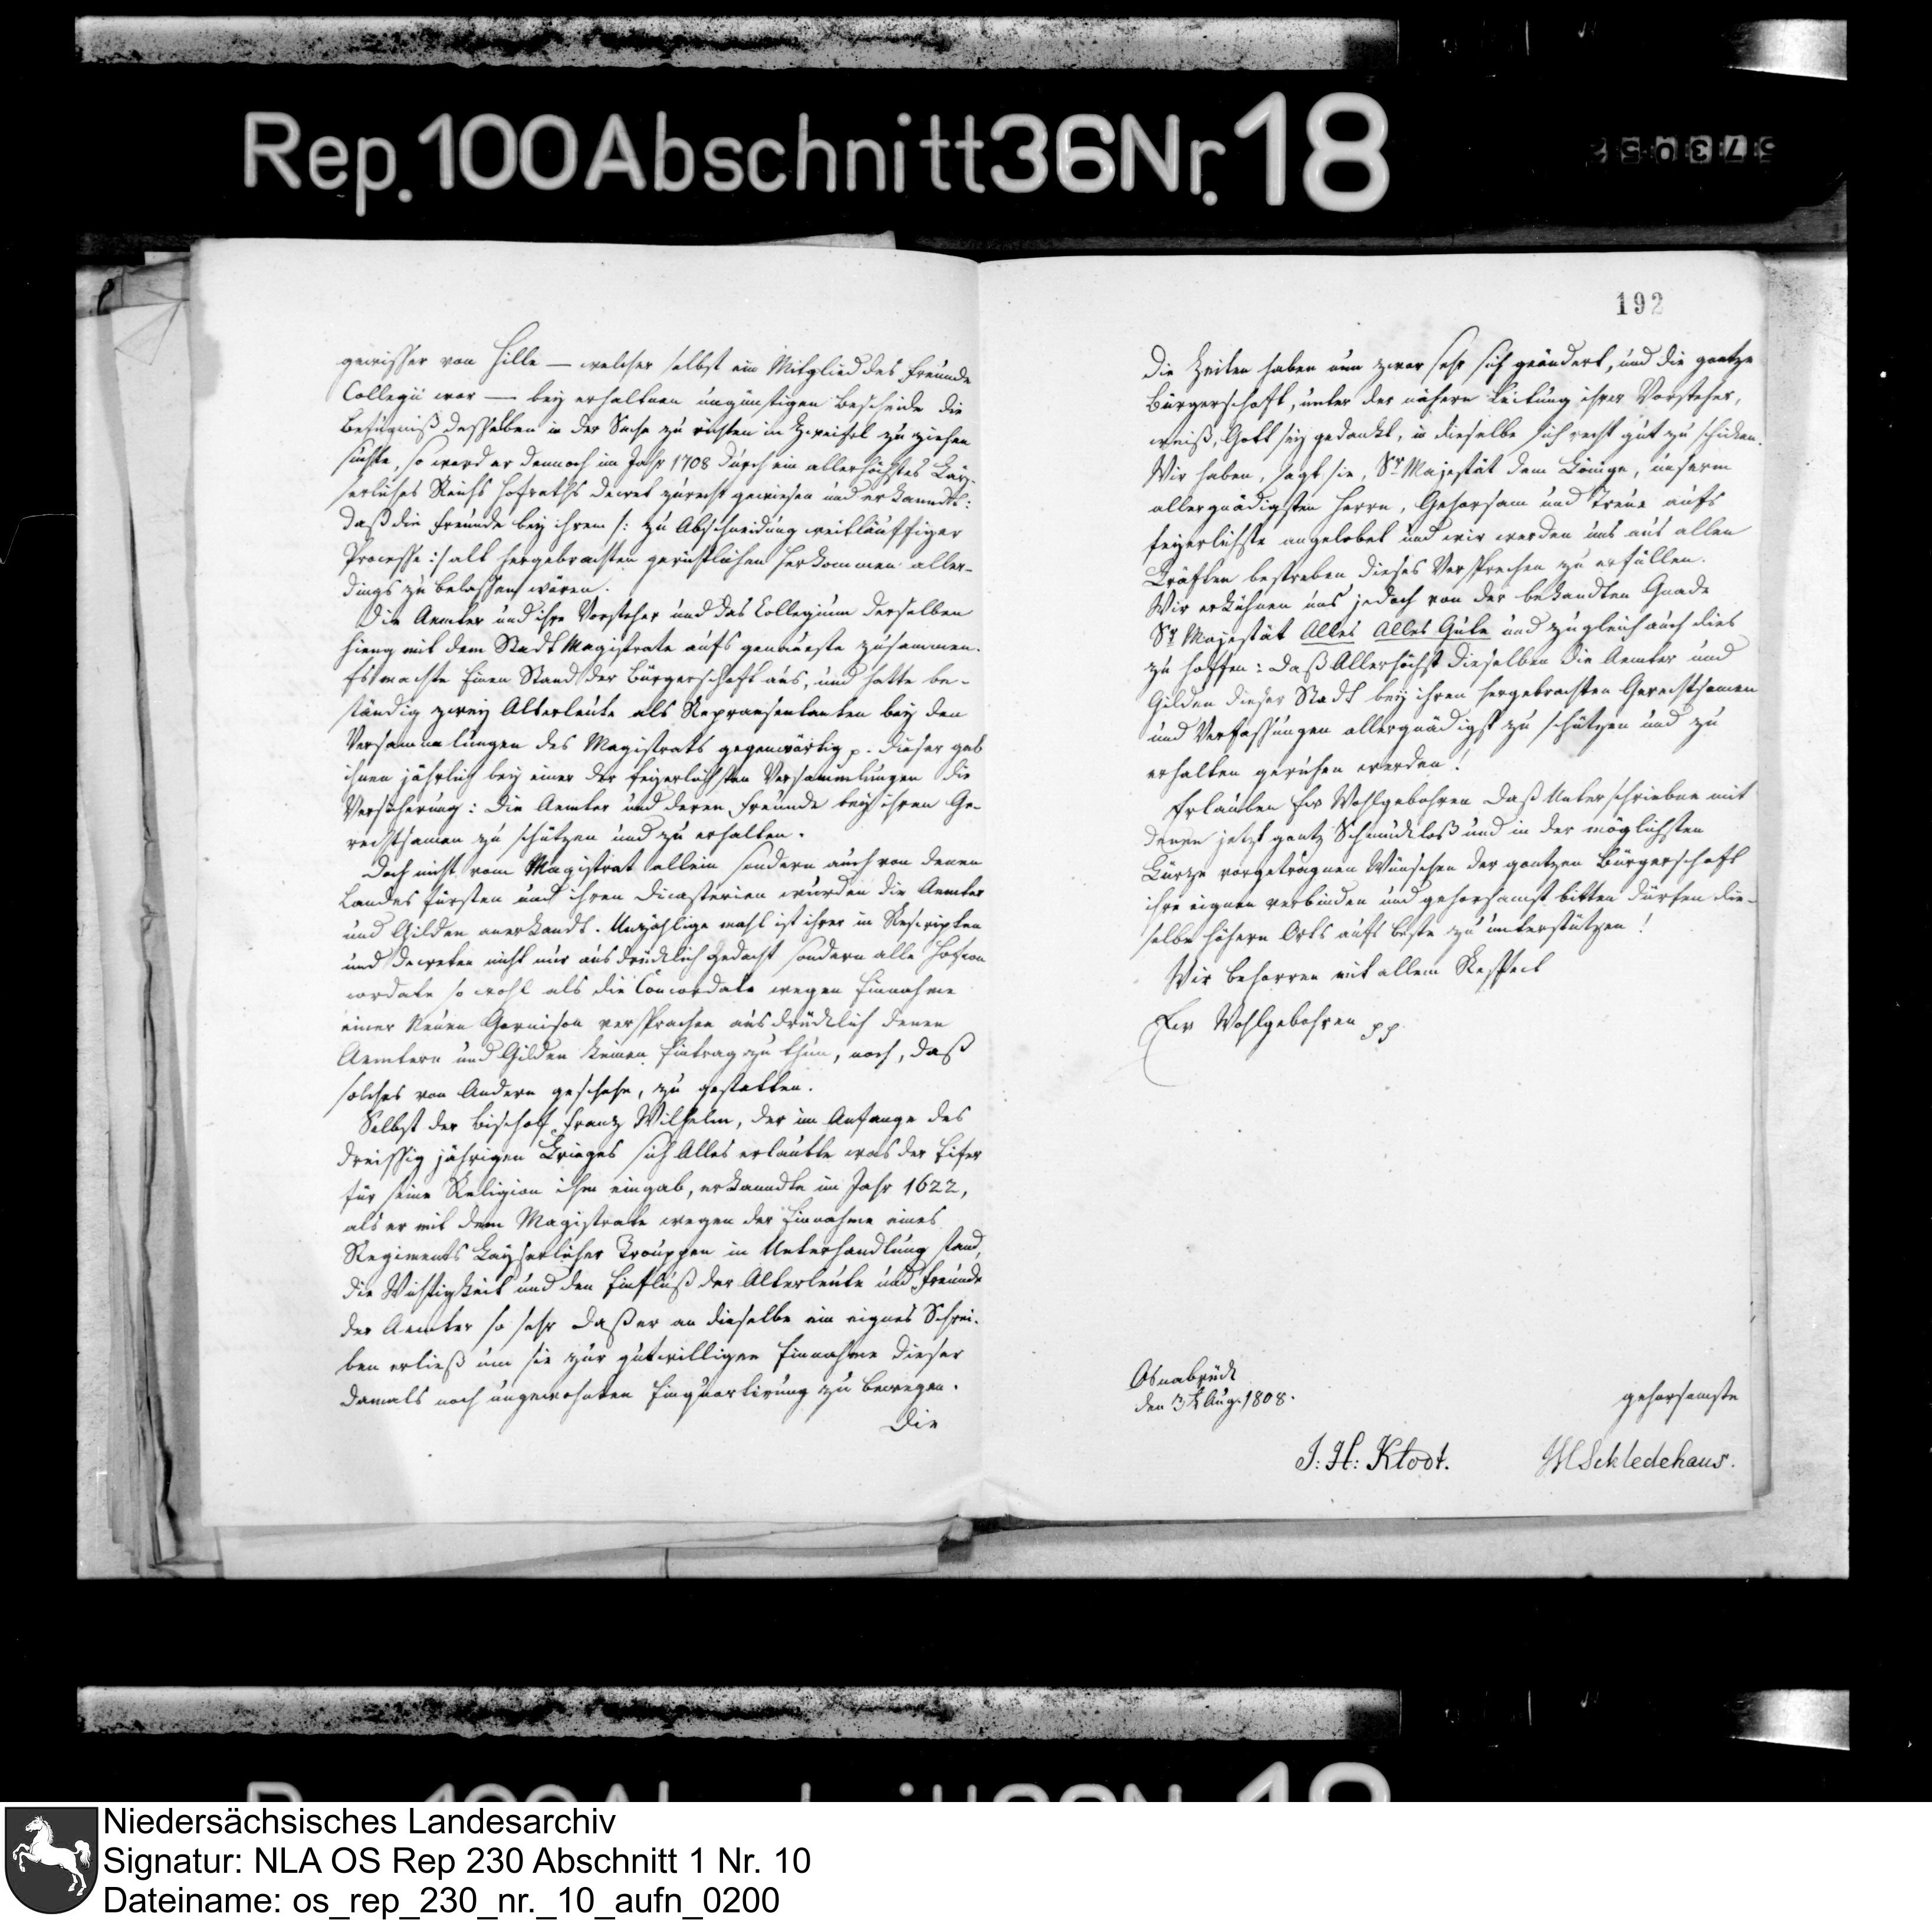 Rep. 100 Abschnitt 36 Nr. 18
192
gewisser von Hille — welcher selbst ein Mitglied des Freunde
Collegii war — bey erhaltnen ungünstigen Bescheide die
Befugniß desselben in der Sache zu richten in Zweifel zu ziehen
suchte, so ward er dennoch im Jahr 1708 durch ein allerhöchstes Kay-
serliches Reichs Hofraths Decret zurecht gewiesen und erkanndt:
daß die Freunde bey ihrem /: zu Abschneidung weitläuffiger
Processe :/ alt hergebrachten gerichtlichen Herkommen aller-
dings zu belassen wären.
Die Aemter und ihre Vorsteher und das Collegium derselben
hieng mit dem Stadt Magistrate aufs genaueste zusammen.
Es machte Einen Stand der Bürgerschaft aus, und hatte be-
ständig zwey Alterleute als Repraesentanten bey den
Versammlungen des Magistrats gegenwärtig p. dieser gab
ihnen jährlich bey einer der feyerlichsten Versammlungen die
Versicherung: die Aemter und deren Freunde bey ihren Ge-
rechtsamen zu schützen und zu erhalten.
Doch nicht vom Magistrat allein sondern auch von denen
Landes Fürsten und ihren Dicasterien wurden die Aemter
und Gilden anerkandt. Unzählige mahl ist ihrer in Rescripten
und Decreten nicht nur ausdrücklich gedacht sondern alle
so wohl als die Concordate wegen Einnahme
einer Neuen Garnison versprachen ausdrücklich denen
Aemtern und Gilden keinen Eintrag zu thun, noch, daß
solches von Andern geschehe, zu gestatten.
Selbst der Bischof Franz Wilhelm, der im Anfange des
dreissig jährigen Krieges sich Alles erlaubte was der Eifer
für seine Religion ihm eingab, erkanndte im Jahr 1622,
als er mit dem Magistrate wegen der Einnahme eines
Regiments Kayserlicher Trouppen in Unterhandlung stand,
die Wichtigkeit und den Einfluß der Alterleute und Freunde
der Aemter so sehr daß er an dieselbe ein eignes Schrei-
ben erließ um sie zur gutwilligen Einnahme dieser
damals noch ungewohnten Einquartirung zu bewegen.
Die
Die Zeiten haben nun zwar sehr sich geändert, und die gantze
Bürgerschaft, unter der nähern Leitung ihrer Vorsteher,
weiß, Gott sey gedankt, in dieselbe sich recht gut zu schicken.
Wir haben, sagt sie, Sr Majestät dem Könige, unserm
allergnädigsten Herrn, Gehorsam und Treue aufs
feyerlichste angelobet und wir werden uns aus allen
Kräften bestreben dieses Versprechen zu erfüllen.
Wir erkühnen uns jedoch von der bekandten Gnade
Sr Majestät Alles Alles Gute und zugleich auch dies
zu hoffen: daß Allerhöchst dieselben die Aemter und
Gilden dieser Stadt bey ihren hergebrachten Gerechtsamen
und Verfassungen allergnädigst zu schützen und zu
erhalten geruhen werden!
Erlauben Ew Wohlgebohren daß Unterschriebne mit
denen jetzt gantz Schmucklos und in der möglichsten
Kürze vorgetragnen Wünschen der gantzen Bürgerschaft
ihre eignen verbinden und gehorsamst bitten dürfen die-
selbe höhern Orts aufs beste zu unterstützen!
Wir beharren mit allem Respect
Ew Wohlgebohren pp.
Osnabrück
den 3t Aug. 1808.
gehorsamste
J: H: Klodt.
Schledehaus.
Niedersächsisches Landesarchiv
Signatur: NLA OS Rep 230 Abschnitt 1 Nr. 10
Dateiname: os_rep_230_nr._10_aufn_0200